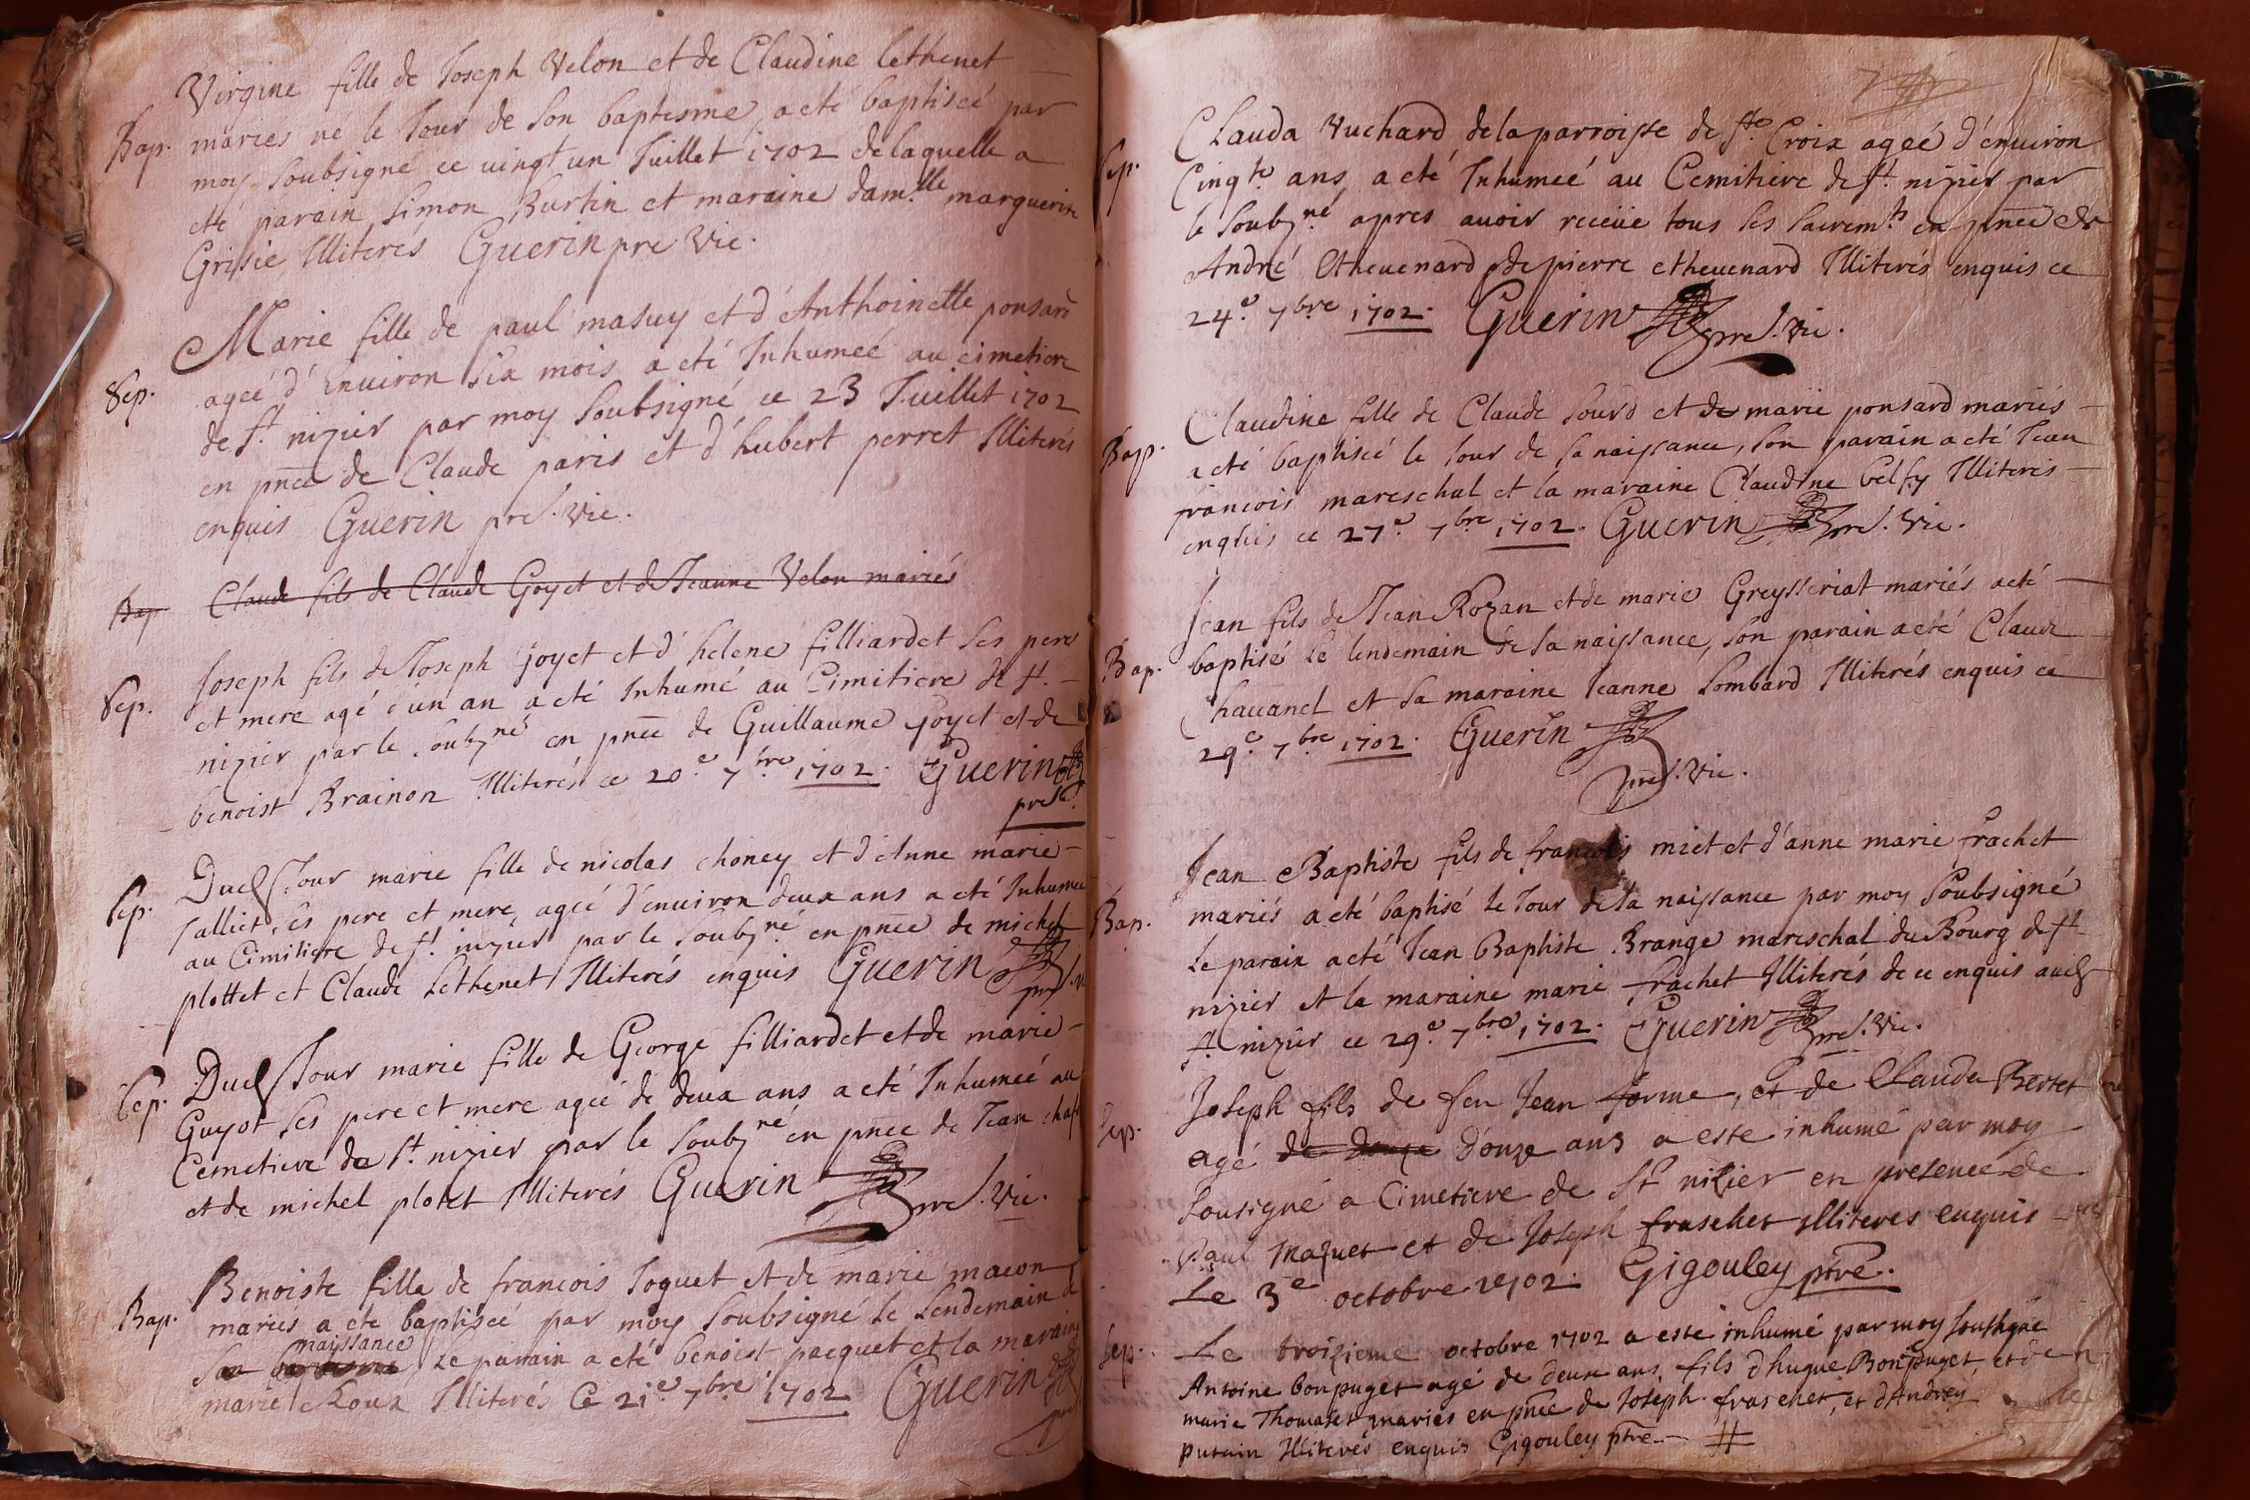 Virgine fille de Joseph Velon et de Claudine Cethenet
Bap. mariés né le Jour de Son baptesme, a eté baptiseé par
moy Soubsigné ce vingt un Juillet 1702 de laquelle a
eté parain Simon Burtin et maraine dam.lle marguerin
Grisie Illiterés Guerin pre Vic.
Marie fille de paul masuy et d'Anthoinette ponsard
Sep. ageé d'Enuiron Six mois a eté Inhumeé au cimetiere
de St. nizier par moy Soubsigné ce 23 Juillet 1702
en pnce de Claude paris et d'hubert perret Illiterés
enquis Guerin pre. Vic.
Bap Claude fils de Claude Goyet et de Jeanne Velon mariés
Joseph fils de Joseph Goyet et d'helene filliardet Ses pere
Sep. et mere agé d'un an a eté Inhumé au Cimitiere de St.
nizier par le Soubzné en pnce de Guillaume Goyet et de
benoist Brainon Illiterés ce 20e 7bre 1702. Guerin
pre
Dud Jour marie fille de nicolas choney et d'Anne marie
Sep. Salliet, Ses pere et mere, ageé d'enuiron deux ans a eté Inhumeé
au Cimitiere de St. nizier par le Soubzné en pnce de michel
plottet et Claude Cethenet Illiterés enquis Guerin
pre
Dud Jour marie fille de George filliardet et de marie
Sep. Guyot Ses pere et mere ageé de deux ans a eté Inhumeé au
Cemetiere de St. nizier par le Soubzné en pnce de Jean
et de michel plotet Illiterés Guerin pre. Vic.
Benoiste fille de francois Joquet et de marie macon
Bap. mariés a eté baptiseé par moy Soubsigné le Lendemain de
naissance
Sa, Le parain a eté benoist pacquet et la maraine
marie Roux Illiterés Ce 21e 7bre 1702 Guerin
pre
Clauda Vuchard de la parroisse de Ste Croix ageé d'enuiron
Sep. Cinqte ans a eté Inhumeé au Cemitiere de St. nizier par
le Soubzné apres auoir receüe tous Ses Sacremts en pnce de
André Etheuenard de pierre etheuenard Illiterés enquis ce
24e 7bre 1702. Guerin pre. Vic.
Claudine fille de Claude Sourd et de marie ponsard mariés
Bap. a eté baptiseé le Jour de Sa naissance, Son parain a eté Jean
francois mareschal et la maraine Claudine belfy Illiterés
enquis ce 27e 7bre 1702. Guerin pre. Vic.
Jean fils de Jean Rozan et de marie Greysseriat mariés a eté
Bap. baptisé Le lendemain de Sa naissance, Son parain a eté Claude
Chauanel et Sa maraine Jeanne Lombard Illiterés enquis ce
29e 7bre 1702. Guerin
pre. Vic.
Jean Baptiste fils de francois miet et d'anne marie frachet
Bap. mariés a eté baptisé le Jour de Sa naissance par moy Soubsigné
Le parain a eté Jean Baptiste Brange mareschal du Bourg de St.
nizier et la maraine marie frachet Illiterés de ce enquis aud
St. nizier ce 29e 7bre 1702. Guerin pre. Vic.
Joseph fils de feu Jean forme, et de Clauda Bertet
Sep. agé de douze D'onze ans a este inhumé par moy
Sousigné a Cimetiere de St nizier en presence de
Paul Mazuet et de Joseph fraschet illiteres enquis
Le 3e octobre 1702. Gigouley ptre.
Sep. Le troizieme octobre 1702 a este inhumé par moy Soussigné
Antoine bonpuget agé de deux ans, fils d'hugue Bonpuget, et de
marie Thomaset mariés en pnce de Joseph fraschet, et d'Andrey
putain Illiterés enquis Gigouley ptre